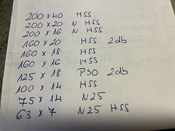 200 x 40 HSS
200 x 20 N HSS
200 x 16 N HSS
160 x 20 HSS 2db
160 x 18 HSS
160 x 16 HSS
125 x 18 P30 2db
100 x 14 HSS
75 x 14 N25
63 x 7 N25 HSS